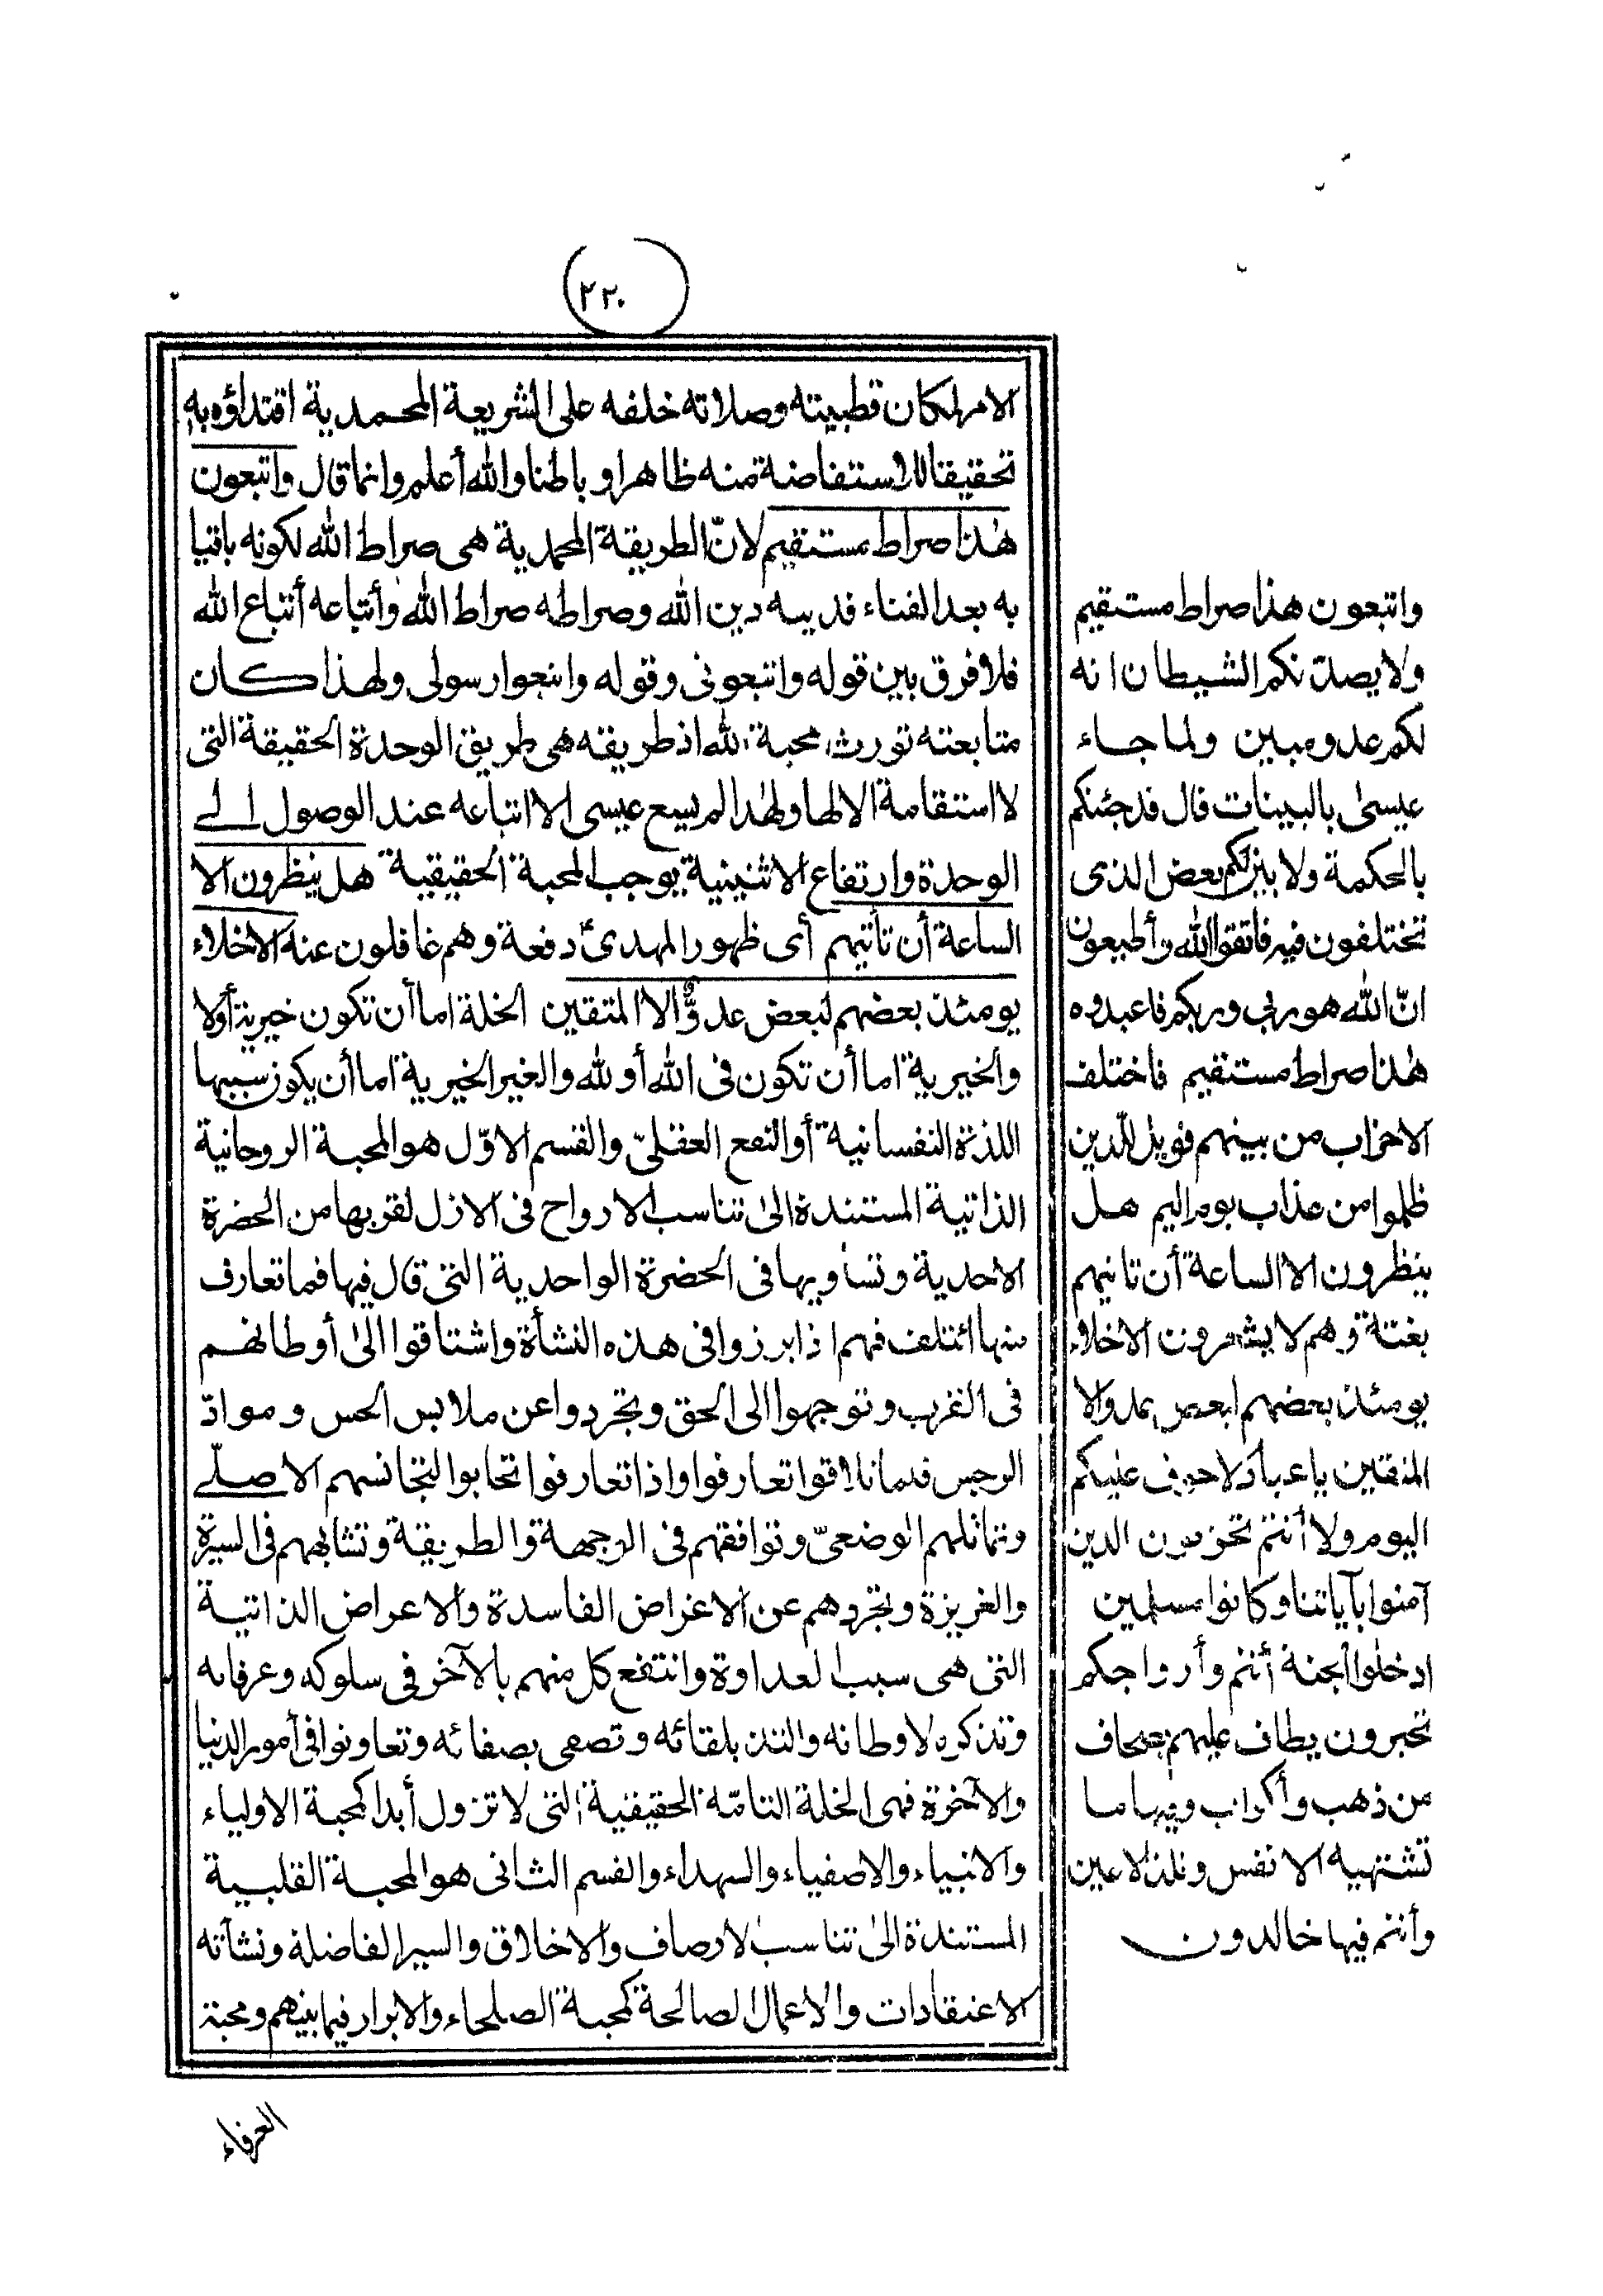 (٢٢٠
الامر لمكان قطبيته وصلاته خلفه على الشريعة المحمدية اقتداؤه به
تحقيقا للاستفاضة منه ظاهرا وباطنا والله أعلم وانما قال واتبعون
هذا صراط مستقيم لانّ الطريقة المحمدية هى صراط الله لكونه باقيا
به بعد الفناء فدينه دين الله وصراطه صراط الله وأتباعه أتباع الله
فلا فرق بين قوله واتبعونى وقوله واتبعوا رسولى ولهذا كان
متابعته تورث محبة الله اذ طريقه هى طريق الوحدة الحقيقة التى
لا استقامة الا لها ولهذا لم يسع عيسى الا اتباعه عند الوصول الى
الوحدة وارتفاع الاثنينية يوجب المحبة الحقيقية هل ينظرون الا
الساعة أن تأتيهم أى ظهور المهدىّ دفعة وهم غافلون عنه الاخلاء
يومئذ بعضهم لبعض عدوّ الا المتقين الخلة اما أن تكون خيرية أولا
والخيرية اما أن تكون فى الله أو لله والغير الخيرية اما أن يكون سببها
اللذة النفسانية أو النفع العقلىّ والقسم الاوّل هو المحبة الروحانية
الذاتية المستندة الى تناسب الارواح فى الازل لقربها من الحضرة
الاحدية وتساويها فى الحضرة الواحدية التى قال فيها فما تعارف
منها ائتلف فهم اذا برزوا فى هذه النشأة واشتاقوا الى أوطانهم
فى القرب وتوجهوا الى الحق وتجردوا عن ملابس الحس وموادّ
الرجس فلما تلاقوا تعارفوا واذا تعارفوا تحابوا لتجانسهم الاصلى
وتماثلهم الوضعىّ وتوافقهم فى الوجهة والطريقة وتشابههم فى السيرة
والغريزة وتجردهم عن الاغراض الفاسدة والاعراض الذاتية
التى هى سبب العداوة وانتفع كل منهم بالآخر فى سلوكه وعرفانه
وتذكره لاوطانه والتذ بلقائه وتصفى بصفائه وتعاونوا فى أمور الدنيا
والآخرة فهى الخلة التامّة الحقيقية التى لا تزول أبدا كمحبة الاولياء
والانبياء والاصفياء والشهداء والقسم الثانى هو المحبة القلبية
المستندة الى تناسب الاوصاف والاخلاق والسير الفاضلة ونشأته
الاعتقادات والاعمال الصالحة كمحبة الصلحاء والابرار فيما بينهم ومحبة
العرفاء
واتبعون هذا صراط مستقيم
ولا يصدّنكم الشيطان انه
لكم عدو مبين ولما جاء
عيسى بالبينات قال قد جئتكم
بالحكمة ولابين لكم بعض الذى
تختلفون فيه فاتقوا الله وأطيعون
انّ الله هو ربى وربكم فاعبدوه
هذا صراط مستقيم فاختلف
الاحزاب من بينهم فويل للذين
ظلموا من عذاب يوم اليم هل
ينظرون الا الساعة أن تاتيهم
بغتة وهم لا يشعرون الاخلاء
يومئذ بعضهم لبعض عدو الا
المتقين ياعباد لا خوف عليكم
اليوم ولا أنتم تحزنون الذين
آمنوا بآياتنا وكانوا مسلمين
ادخلوا الجنة أنتم وأزواجكم
تحبرون يطاف عليهم بصحاف
من ذهب وأكواب وفيها ما
تشتهيه الانفس وتلذ الاعين
وأنتم فيها خالدون